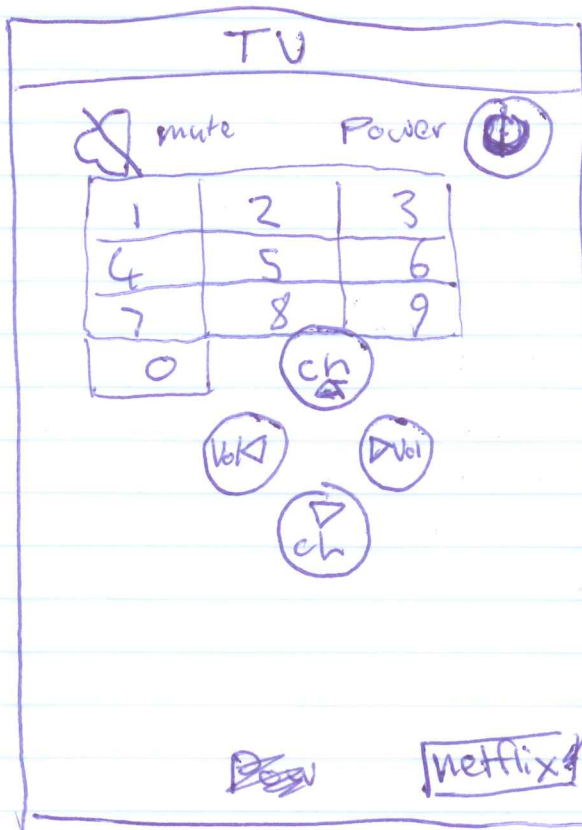 TV
mute Power
1 2 3
4 5 6
7 8 9
0 ch
Vol Vol
ch
netflix